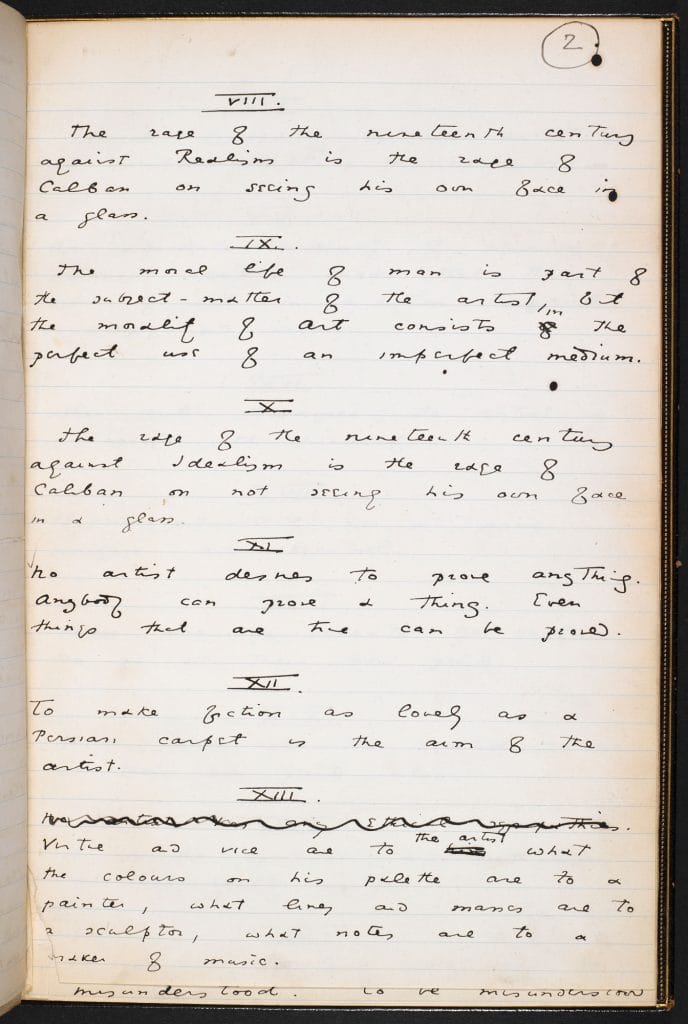 2
VIII.
The rage of the nineteenth century
against Realism is the rage of
Caliban on seeing his own face in
a glass.
IX.
The moral life of man is part of
the subject-matter of the artist, but
the morality of art consists in the
perfect use of an imperfect medium.
X
The rage of the nineteenth century
against Idealism is the rage of
Caliban on not seeing his own face
in a glass.
XI
No artist desires to prove anything.
Anybody can prove a thing. Even
things that are true can be proved.
XII.
To make fiction as lovely as a
Persian carpet is the aim of the
artist.
XIII.
No artist has any Ethical sympathies.
Virtue and vice are to the artist what
the colours on his palette are to a
painter, what lines and masses are to
a sculptor, what notes are to a
maker of music.
misunderstood. to be misunderstood